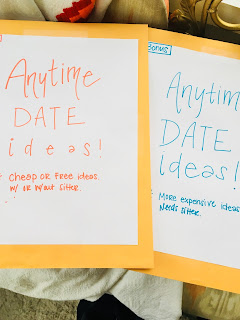 Anytime
DATE
ideas!
Cheap or Free ideas
w/ or w/out sitter.
Bonus
Anytim
DATE
ideas!
More expensive ideas
Needs sitter.